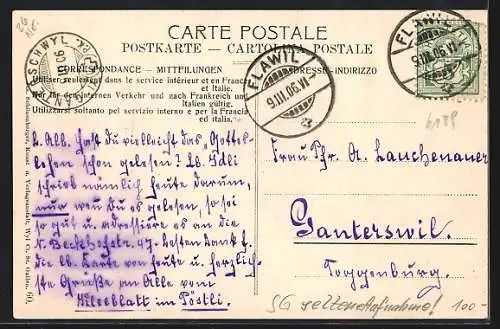 26
CARTE POSTALE
POSTKARTE - CARTOLINA POSTALE
CORRESPONDANCE - MITTEILUNGEN
ADRESSE-INDIRIZZO
Utiliser seulement dans le service intérieur et en France et Italie.
Nur für den internen Verkehr und nach Frankreich und Italien gültig.
Utilizzarsi soltanto pel servizio interno e per la Francia ed italia.
FLAWIL
9.III.06.VI
FLAWIL
9.III.06.VI
L. Alb. Hast du vielleicht das "Gottes-
lehen schon gelesen? Lb. Idli
schrieb nämlich heute darum,
nur wenn du es gelesen, so sei
so gut u. adressiere es an die
N. Beckenhofstr. 47. Besten Dank f.
die lb. Karte von heute u. herzlich-
ste Grüsse an Alle vom
Kleeblatt im Pöstli.
Frau Pfr. A. Lauchenauer
Ganterswil.
Toggenburg.
SG seltene Aufnahme! 100-